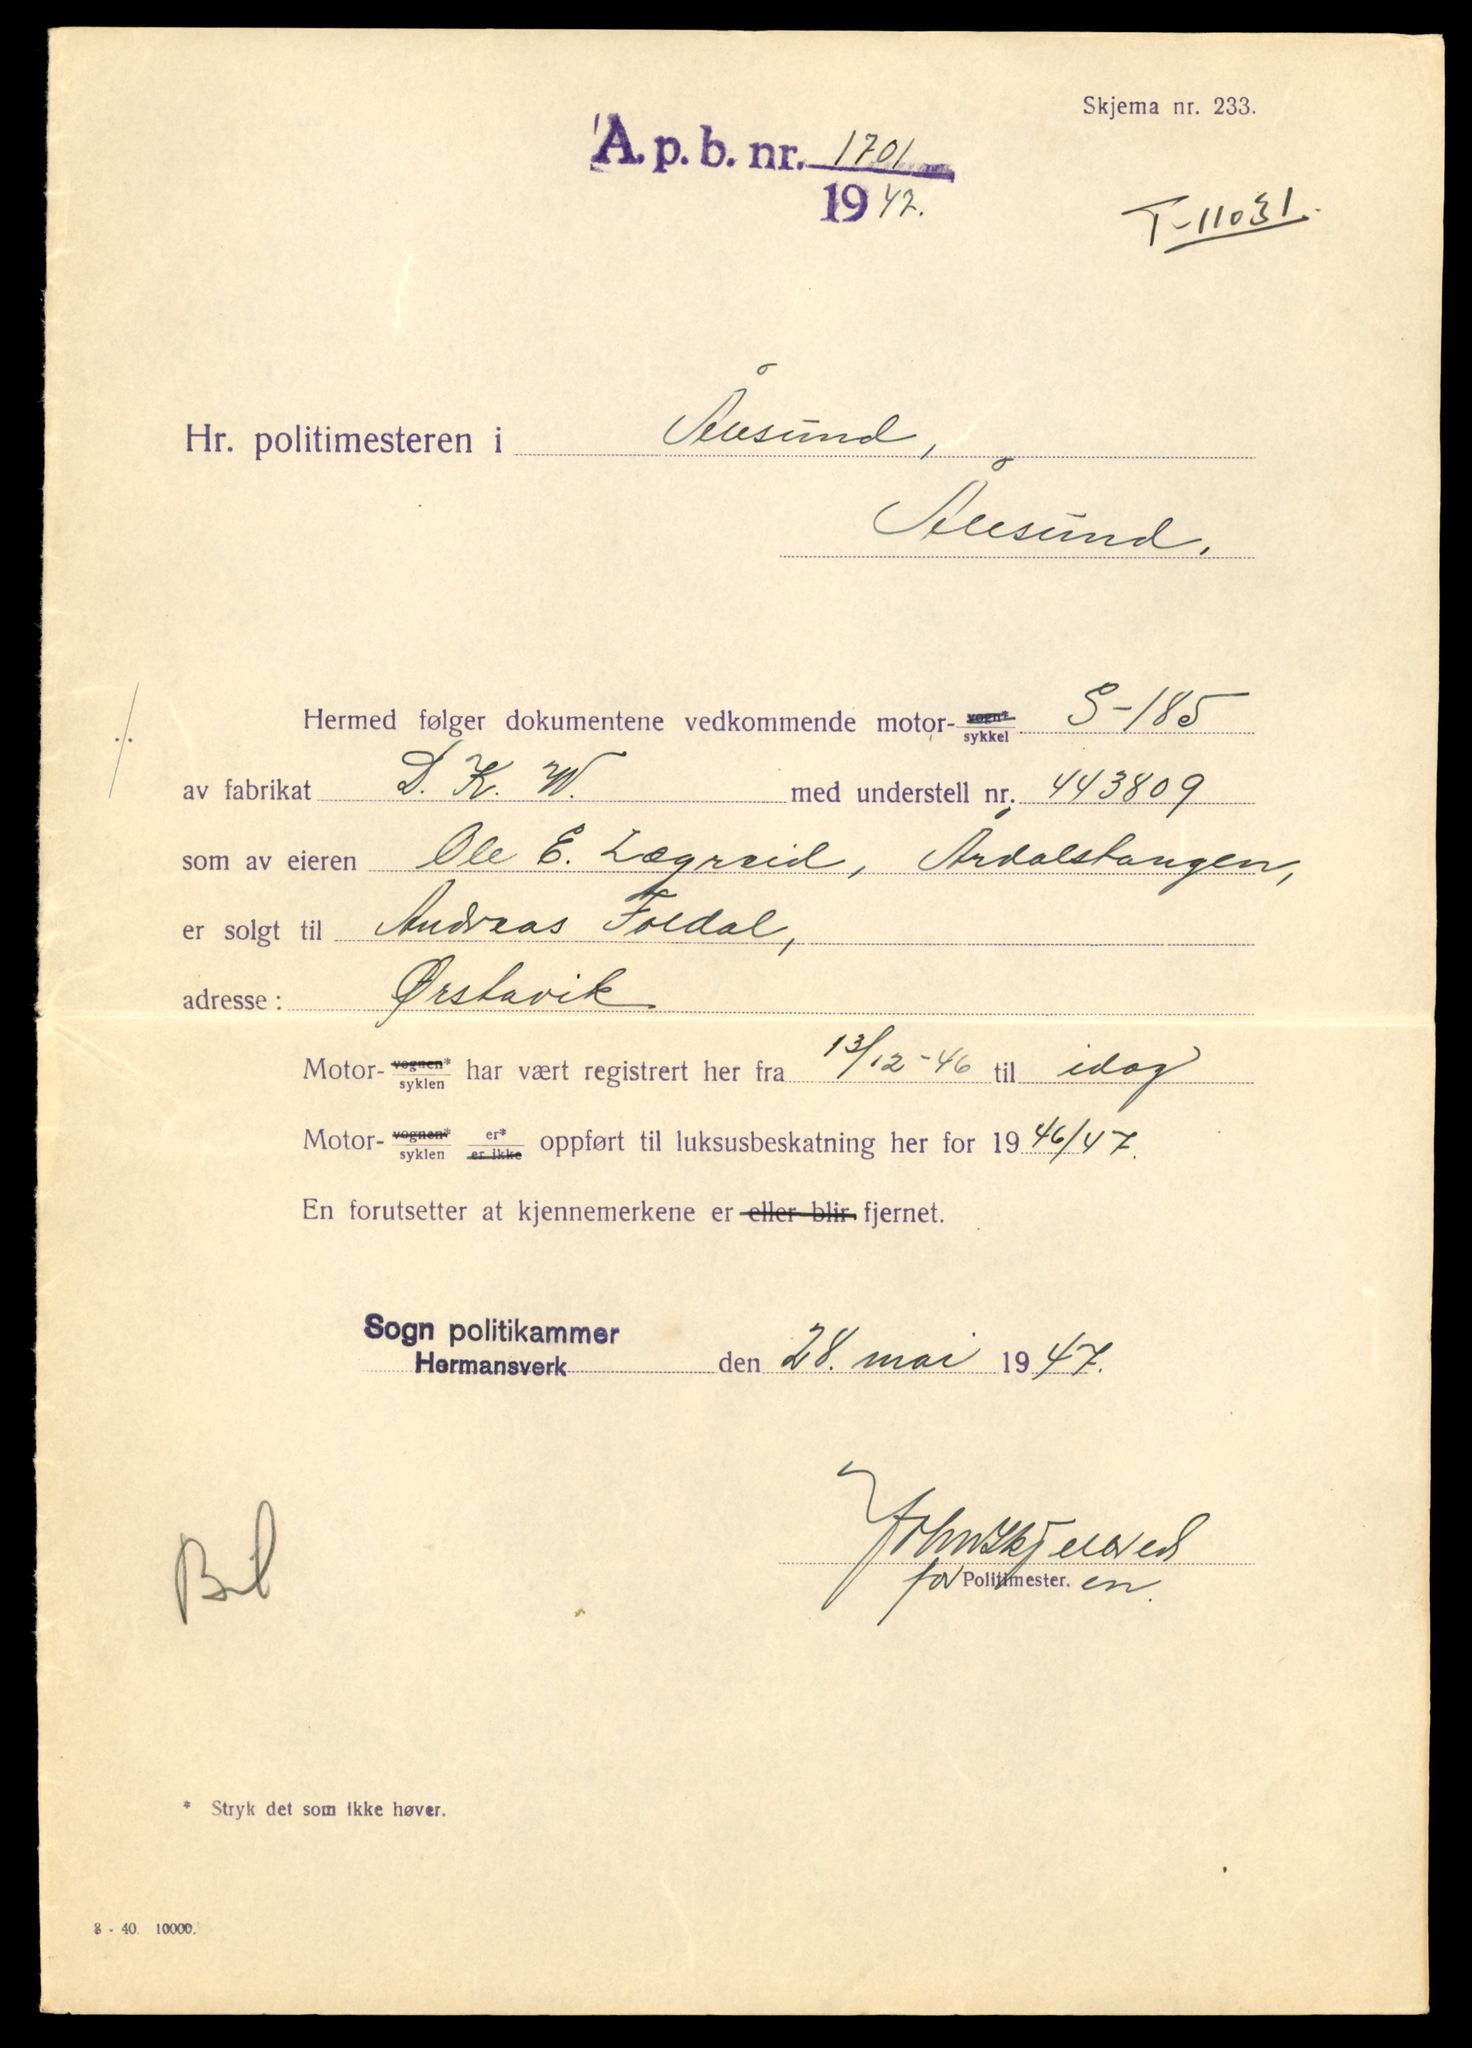 Skjema nr. 233.
A. p. b. nr. 1701
1942.
T-11031.
Hr. politimesteren i Ålesund,
Ålesund.
Hermed følger dokumentene vedkommende motor- vogn* sykkel S-185
av fabrikat D. K. W. med understell nr. 443809
som av eieren Ole E. Lægreid, Årdalstangen,
er solgt til Andreas Foldal,
adresse: Ørstavik
Motor- vognen* syklen har vært registrert her fra 13/12-46 til idag
Motor- vognen* syklen er* er ikke oppført til luksusbeskatning her for 1946/47.
En forutsetter at kjennemerkene er eller blir fjernet.
Sogn politikammer
Hermansverk den 28. mai 1947.
for Politimester. en.
Bil
* Stryk det som ikke høver.
8 - 40. 10000.